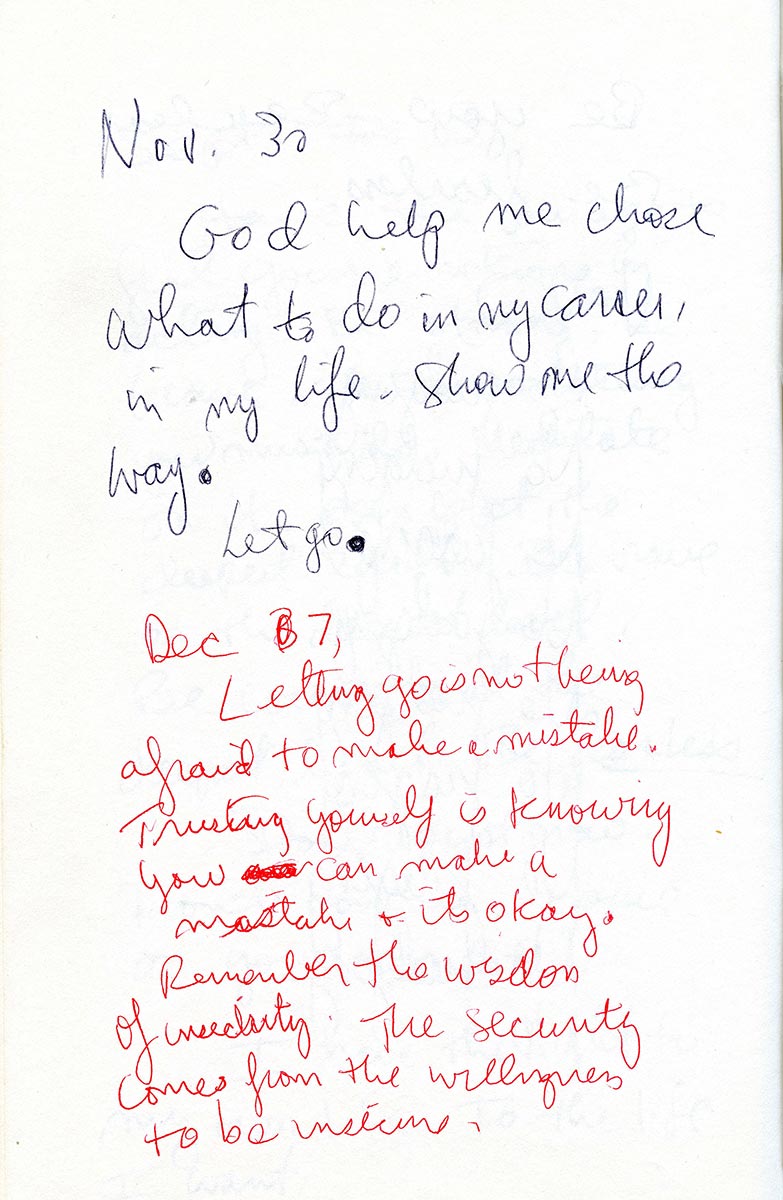 Nov. 30
God help me chose
what to do in my career,
in my life. Show me the
way.
Let go.
Dec 7,
Letting go is not being
afraid to make a mistake.
Trusting yourself is knowing
you can make a
mistake & its okay.
Remember the wisdom
of insecurity. The security
comes from the willingness
to be insecure.